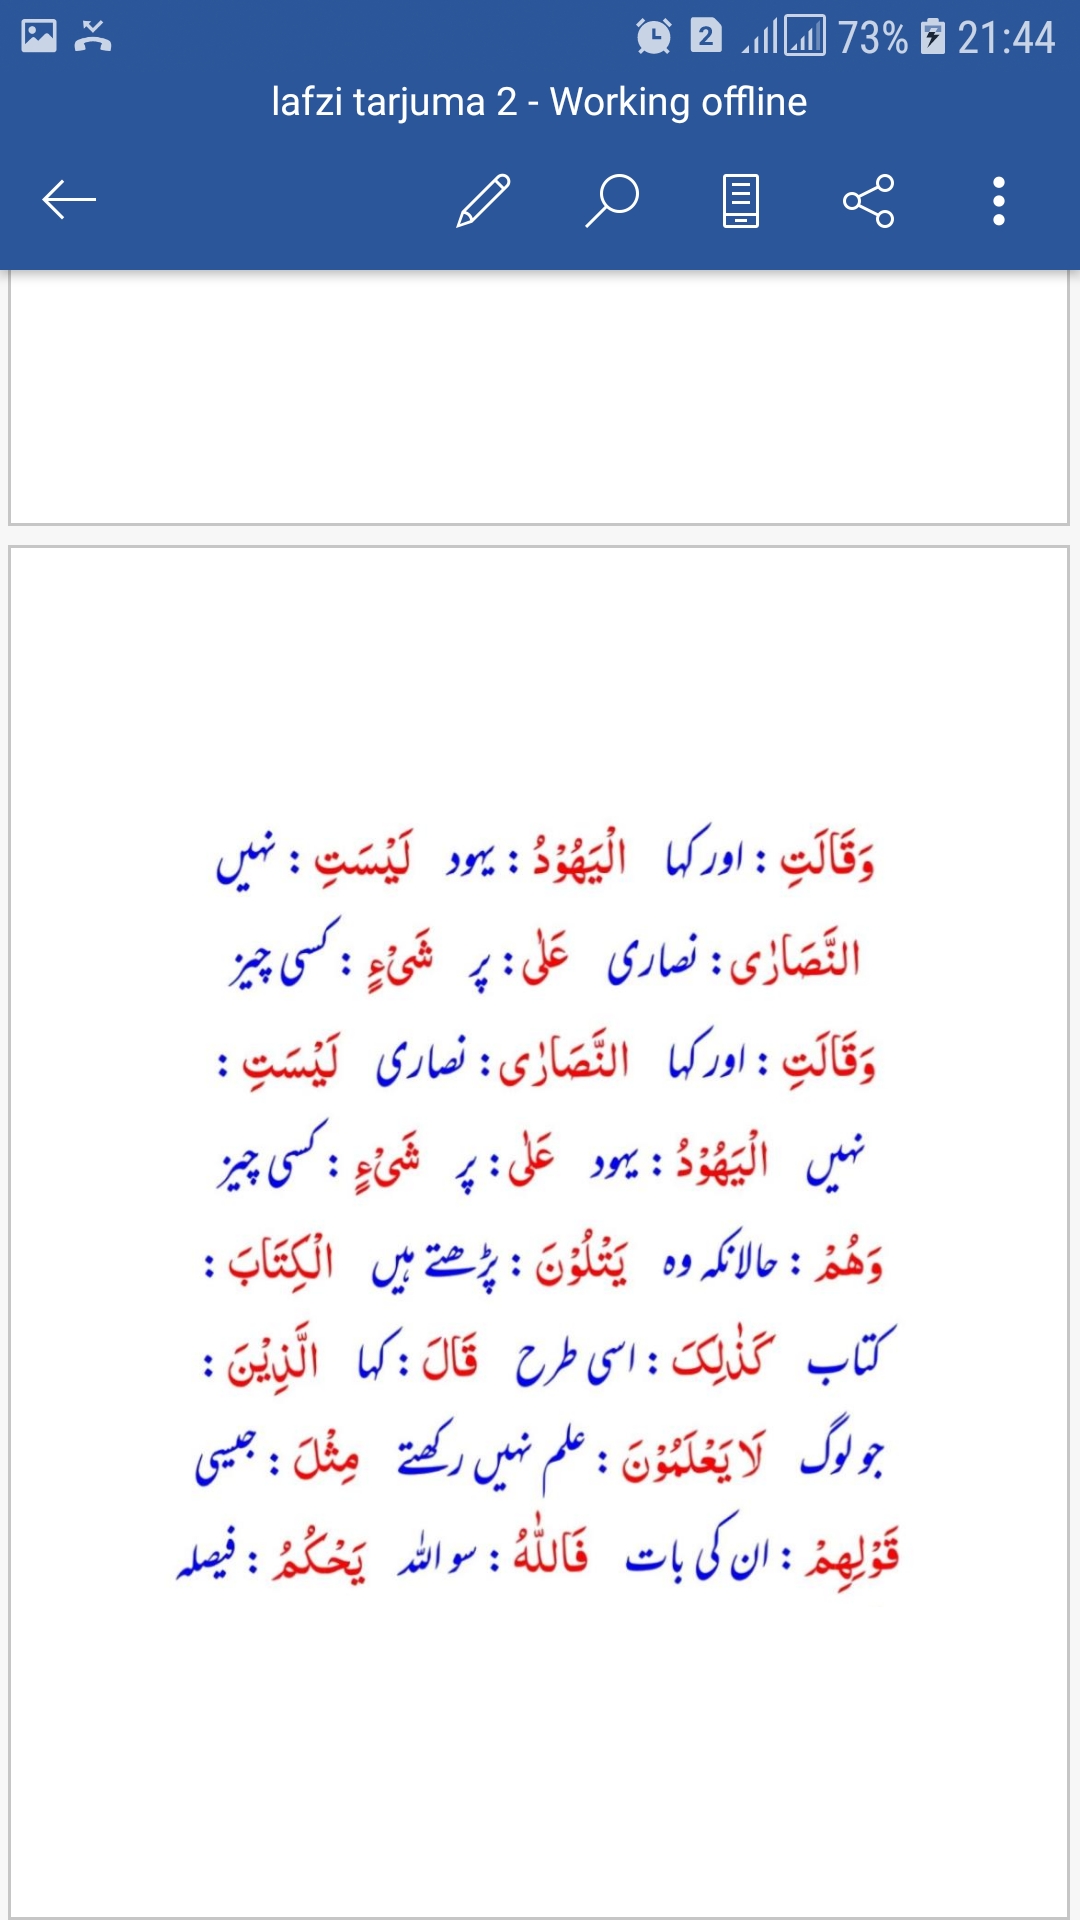 73% 21:44
lafzi tarjuma 2 - Working offline
وَقَالَتِ : اور کہا الْیَهُوْدُ : یہود لَیْسَتِ : نہیں
النَّصَارٰی : نصاری عَلٰی : پر شَیْءٍ : کسی چیز
وَقَالَتِ : اور کہا النَّصَارٰی : نصاری لَیْسَتِ :
نہیں الْیَهُوْدُ : یہود عَلٰی : پر شَیْءٍ : کسی چیز
وَهُمْ : حالانکہ وہ یَتْلُوْنَ : پڑھتے ہیں الْکِتَابَ :
کتاب کَذٰلِکَ : اسی طرح قَالَ : کہا الَّذِیْنَ :
جو لوگ لَا یَعْلَمُوْنَ : علم نہیں رکھتے مِثْلَ : جیسی
قَوْلِهِمْ : ان کی بات فَاللّٰهُ : سو اللہ یَحْکُمُ : فیصلہ